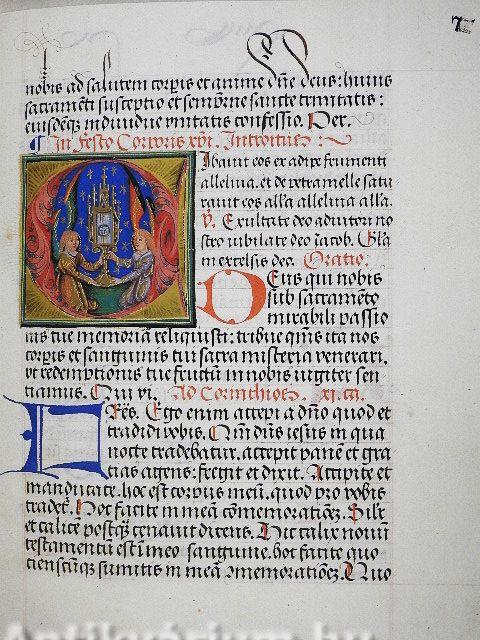 7
nobis ad salutem corp̄is et anime dn̄e deus: huius
sacramēti susceptio et semp̄rne sancte trinitatis:
eiusdēq; indiuidue vnitatis confessio. Per.
¶ In Festo Corporis xp̄i. Introitus
Cibauit eos ex adipe frumenti
alleluia. et de petra melle satu
rauit eos all'a alleluia all'a.
V. Exultate deo adiutori no
stro iubilate deo iacob. Gl'a
in excelsis deo. Oratio:
Deus qui nobis
sub sacramēto
mirabili passio
nis tue memoriā reliquisti: tribue qm̄s ita nos
corp̄is et sanguinis tui sacra misteria venerari.
vt redemptionis tue fructū in nobis iugiter sen
tiamus. Qui vi. Ad Corinthios. xi. ca.
Fr̄es. Ego enim accepi a dn̄o quod et
tradidi vobis. Qm̄ dn̄s iesus in qua
nocte tradebatur. accepit panē et gra
tias agens: fregit et dixit. Accipite et
manducate. hoc est corpus meū. quod pro vobis
tradet̄. Hoc facite in meā cōmemoratiōez. Silr̄
et calicē postq̄ cenauit dicens. Hic calix nouū
testamentū est ī meo sanguine. hoc facite quo
cienscūq; sumitis in meā ɔmemoratiōez. Quo
Antikvárium.hu